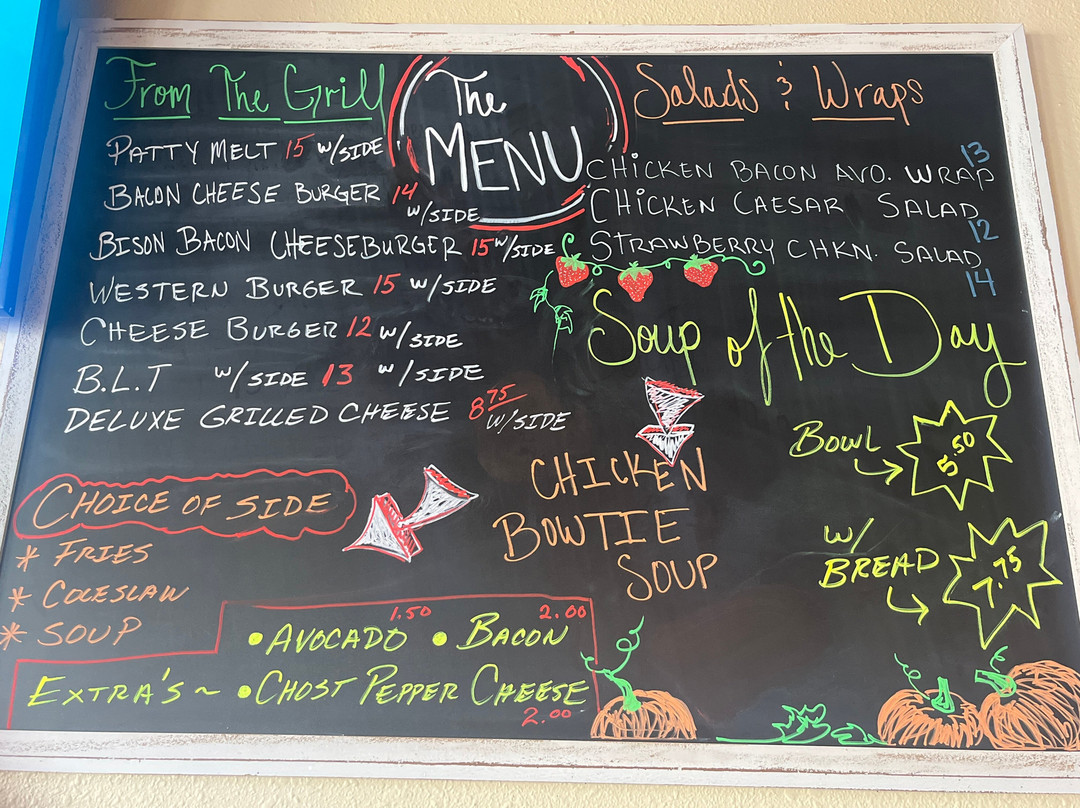 The
MENU
From The Grill
PATTY MELT 15 W/SIDE
BACON CHEESE BURGER 14
W/SIDE
BISON BACON CHEESEBURGER 15 W/SIDE
WESTERN BURGER 15 W/SIDE
CHEESE BURGER 12 W/SIDE
B.L.T W/SIDE 13 W/SIDE
DELUXE GRILLED CHEESE 8 75
W/SIDE
CHOICE OF SIDE
* FRIES
* COLESLAW
* SOUP
1.50 2.00
• AVOCADO • BACON
EXTRA'S ~ • CHOST PEPPER CHEESE
2.00
Salads & Wraps
13
CHICKEN BACON AVO. WRAP
CHICKEN CAESAR SALAD
12
STRAWBERRY CHKN. SALAD
14
Soup of the Day
CHICKEN
BOWTIE
SOUP
BOWL
5.50
W/
BREAD
7.75